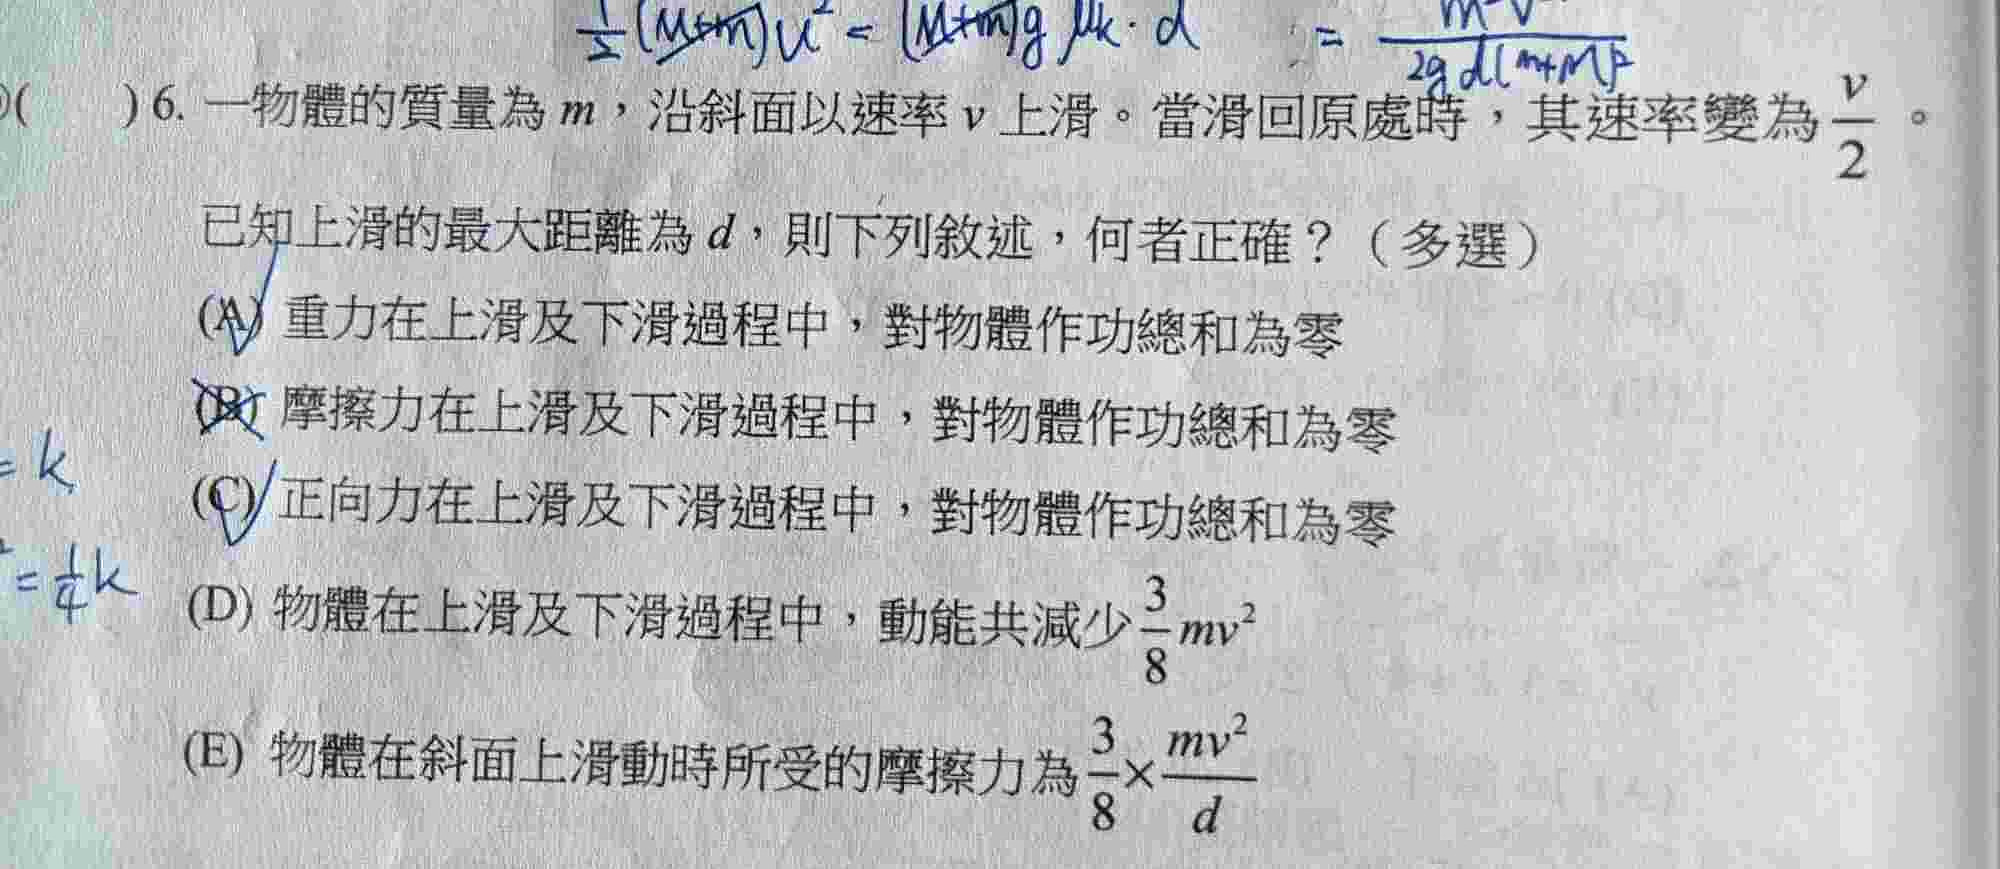 ½(M+m)u² = (M+m)g μk · d = m²v² / 2gd(m+M)²
( )6. 一物體的質量為 m，沿斜面以速率 v 上滑。當滑回原處時，其速率變為 v/2 。
已知上滑的最大距離為 d，則下列敘述，何者正確？（多選）
(A) 重力在上滑及下滑過程中，對物體作功總和為零
(B) 摩擦力在上滑及下滑過程中，對物體作功總和為零
= k
(C) 正向力在上滑及下滑過程中，對物體作功總和為零
= ¼k
(D) 物體在上滑及下滑過程中，動能共減少 3/8 mv²
(E) 物體在斜面上滑動時所受的摩擦力為 3/8 × mv²/d